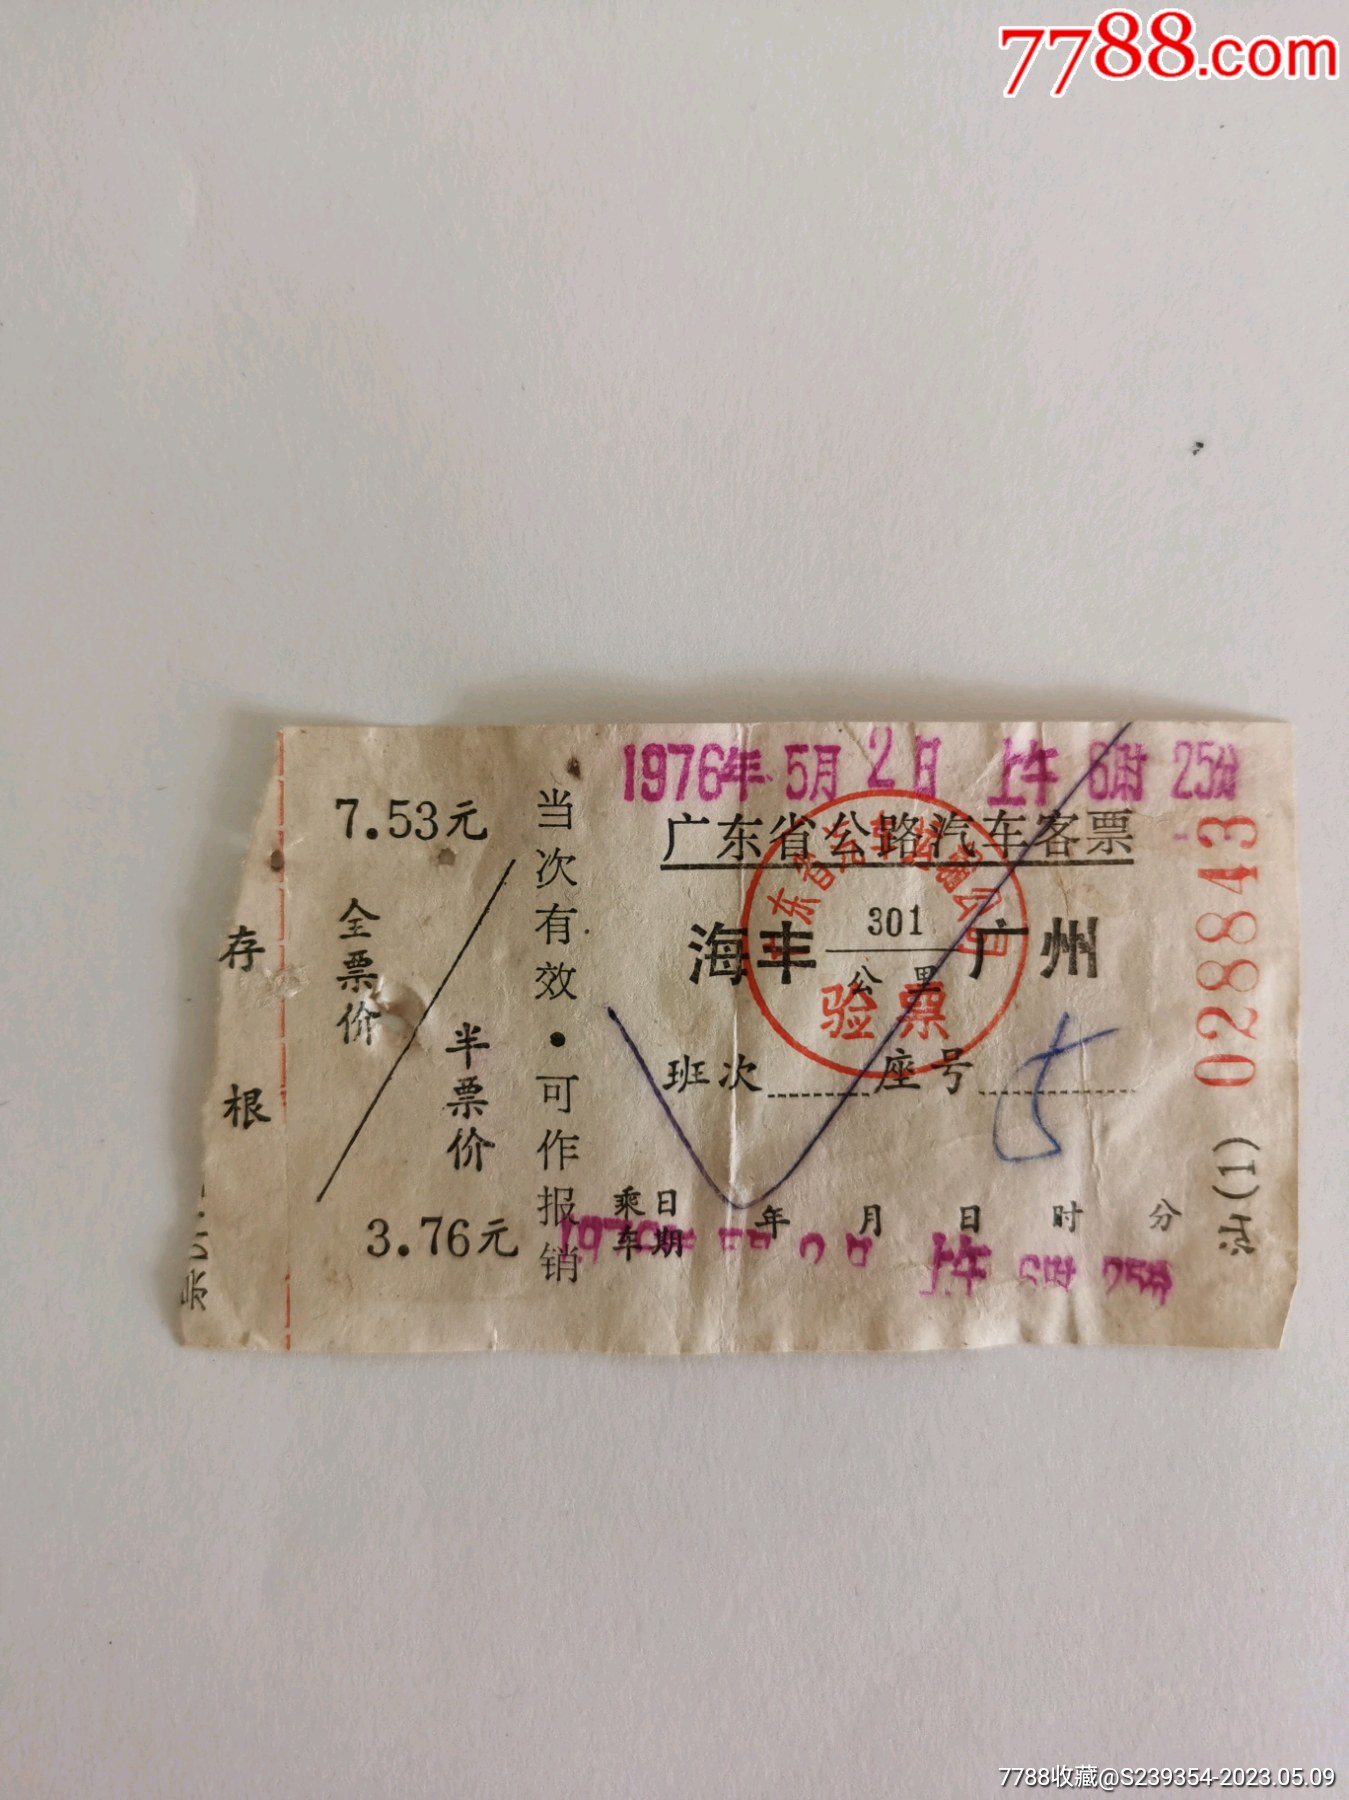 7788.com
1976年 5月 2日 上午 6时 25分
广东省公路汽车客票
海丰 301 公里 广州
验票
班次 座号 5
乘车日期 年 月 日 时 分
上午 6时 25分
0288843
汕(1)
当次有效·可作报销
7.53元
全票价
半票价
3.76元
存根
7788收藏@S239354-2023.05.09